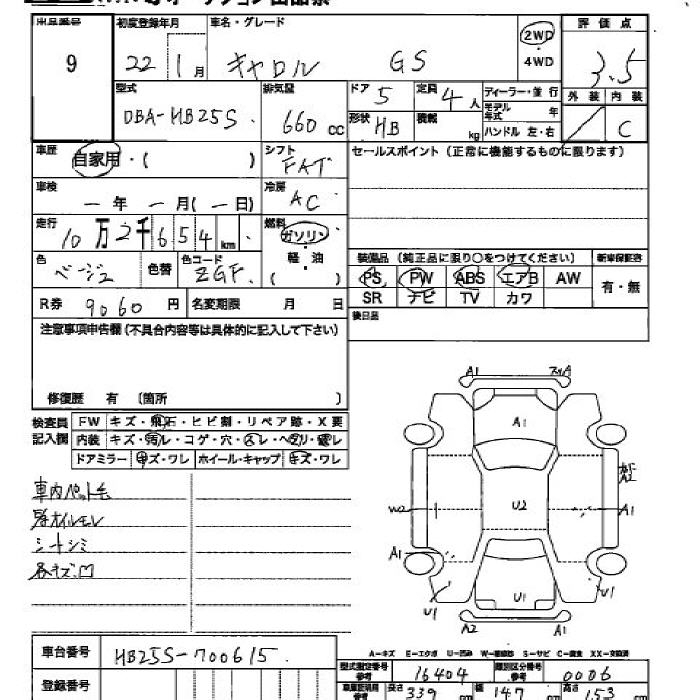 出品番号 初度登録年月 車名・グレード 2WD ・ 4WD 評価点
9 22 1月 キャロル GS 3.5
型式 排気量 ドア 5 定員 4人 ディーラー・並行 外装 内装
DBA-HB25S 660cc 形状 HB 積載 kg モデル年式 年 ハンドル 左・右 C
車歴 自家用・( ) シフト FAT セールスポイント (正常に機能するものに限ります)
車検 一年 一月(一日) 冷房 AC
走行 10万2千654km 燃料 ガソリン・軽油
色 ベージュ 色替 色コード ZGF 装備品 (純正品に限り○をつけてください) 新車保証書
PS PW ABS エアB AW 有・無
R券 9060円 名変期限 月 日 SR ナビ TV カワ
注意事項申告欄(不具合内容等は具体的に記入して下さい) 後日品
修復歴 有 (箇所 )
検査員記入欄 FW キズ・飛石・ヒビ割・リペア跡・X要
内装 キズ・汚ル・コゲ・穴・スレ・ヘコリ・破レ
ドアミラー キズ・ワレ ホイール・キャップ キズ・ワレ
車内ペット毛
オイルモレ
シートシミ
各キズ凹
A1 A
A1
A2
W2 U2 A1
A1
U1 U1 U1
A2 A1
A-キズ E-エクボ U-凹み W-補修跡 S-サビ C-腐食 XX-交換済
車台番号 HB25S-700615 型式指定番号参考 16404 類別区分番号参考 0006
登録番号 車庫証明用参考 長さ 339cm 幅 147cm 高さ 153cm